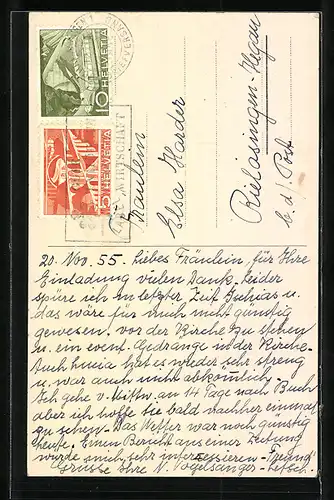 HELVETIA
10
HELVETIA
5
WIRTSCHAFT
Fräulein
Elsa Harder
Rielasingen-Hegau
b.d. Post
20. Nov. 55. Liebes Fräulein, für Ihre
Einladung vielen Dank. Leider
spüre ich in letzter Zeit Ischias u.
das wäre für mich nicht günstig
gewesen, vor der Kirche zu stehen
u. ein event. Gedränge in der Kirche.
Auch hat es wieder sehr streng
u. war auch nicht abkömmlich.
Ich gehe v. an 14 Tage nach Buch
aber ich hoffe sie bald nachher einmal
zu sehen. Das Wetter war noch günstig
heute. Einen Bericht aus einer Zeitung
würde mich sehr interessieren. Freundl.
Grüsse Ihre N. Vogelsanger